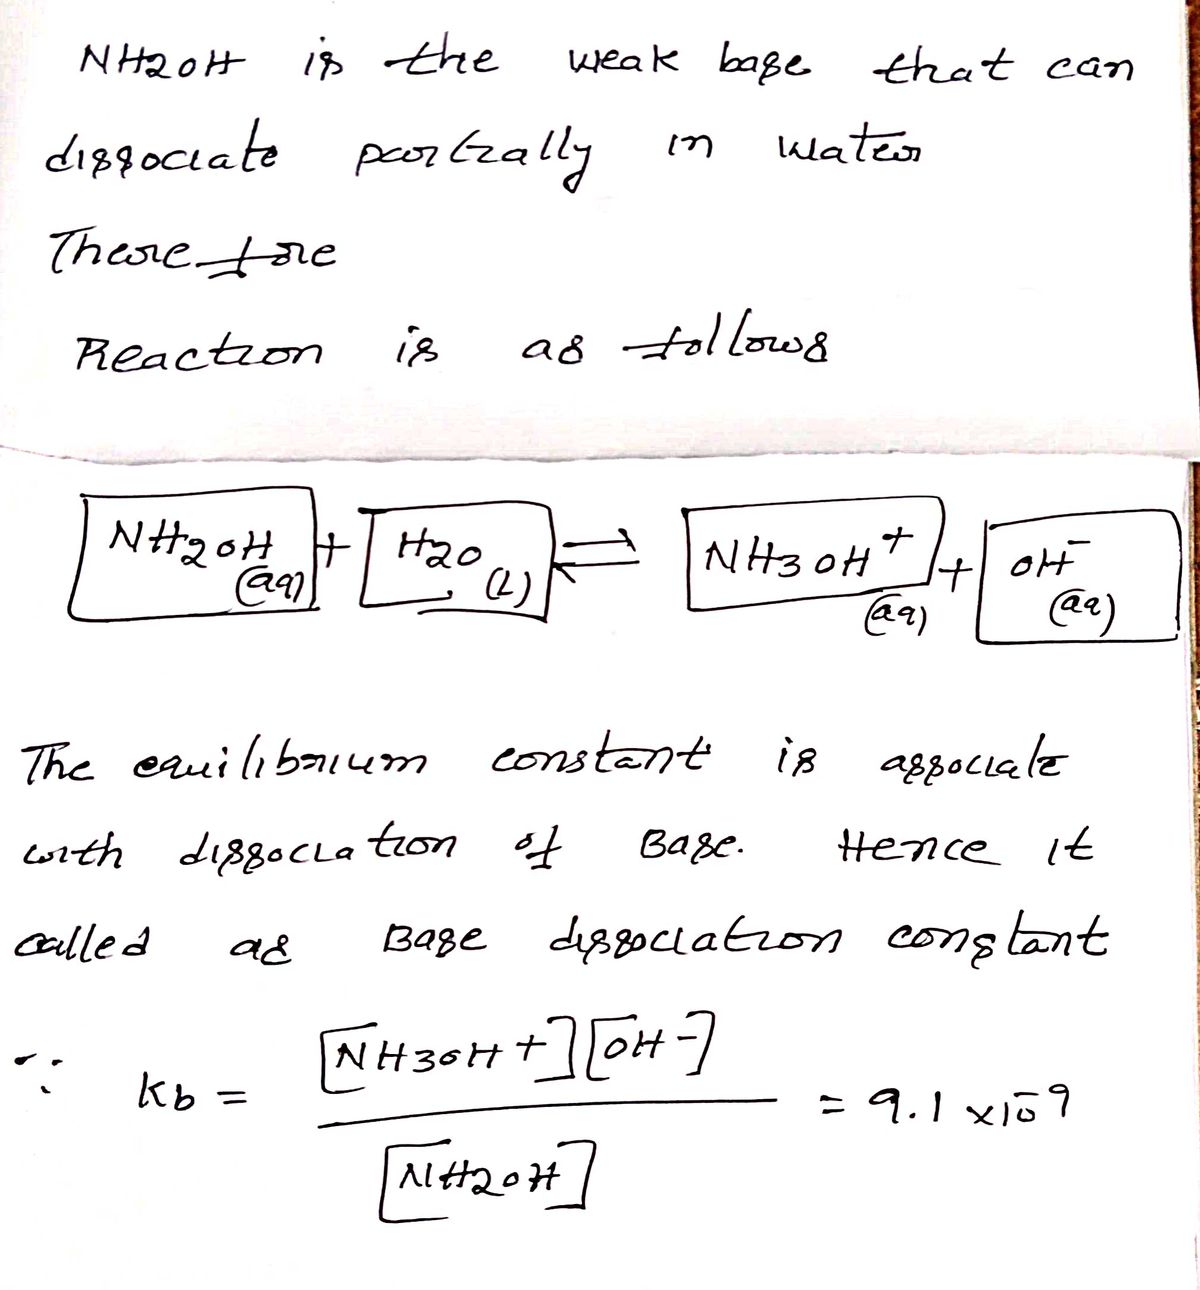 NH2OH is the weak base that can
dissociate partially in water
Therefore
Reaction is as follows
NH2OH (aq) + H2O (L) ⇌ NH3OH+ (aq) + OH- (aq)
The equilibrium constant is associate
with dissociation of Base. Hence it
called as Base dissociation constant
∵ Kb = [NH3OH+][OH-] / [NH2OH] = 9.1 x10-9